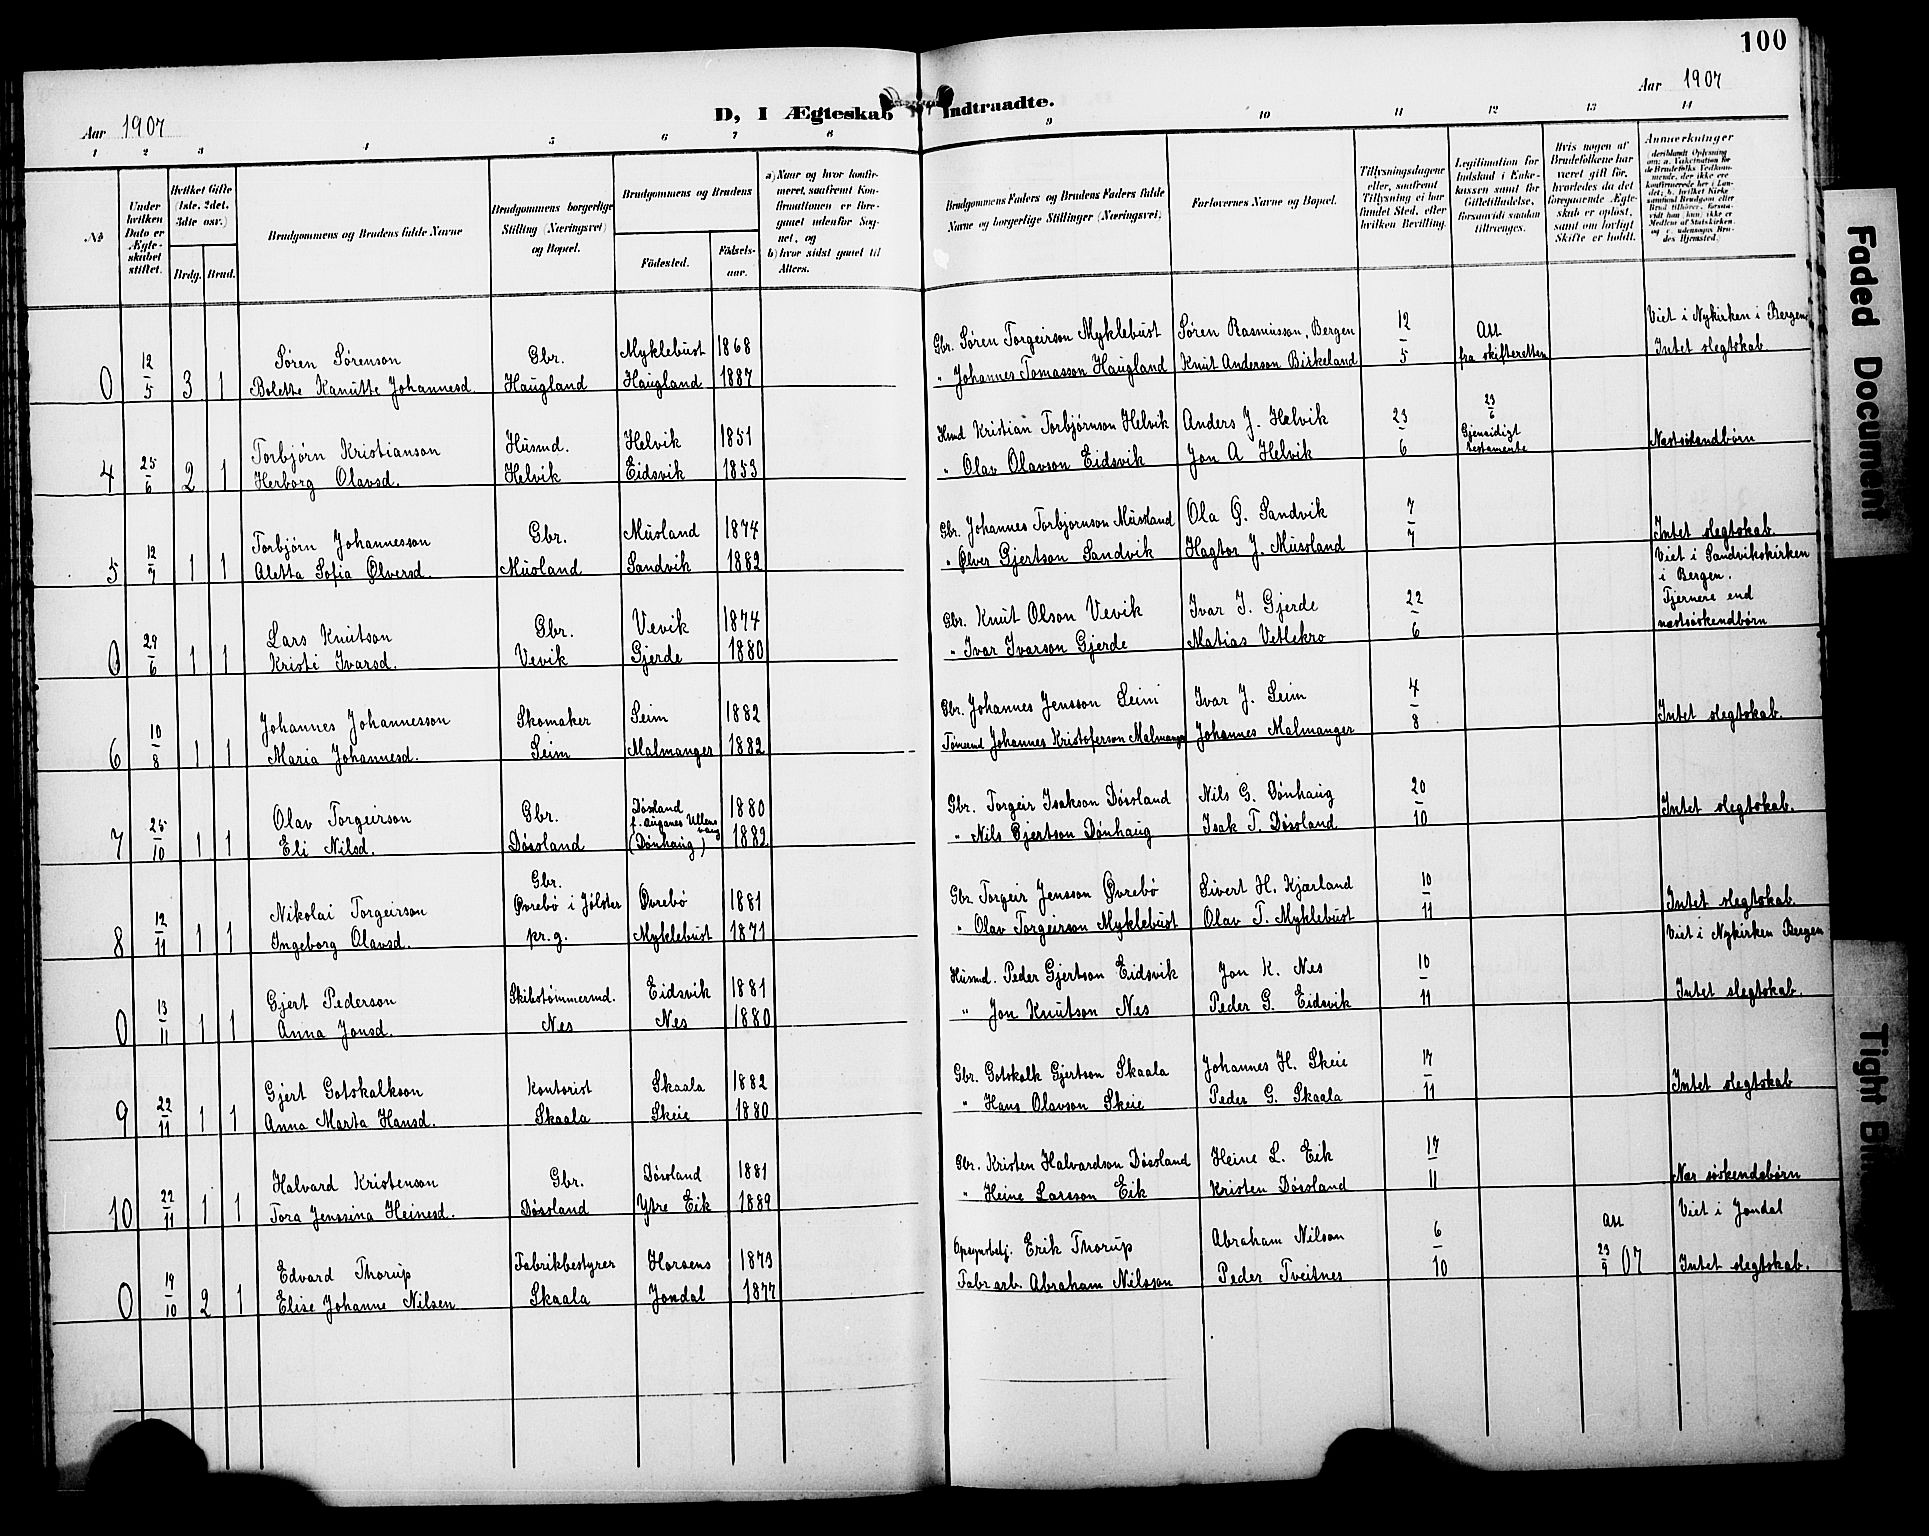 100
Aar 1907
D, I Ægteskab Indtraadte.
Aar 1907
1 2 3 4 5 6 7 8 9 10 11 12 13 14
No
Under hvilken Dato er Ægteskabet stiftet.
Hvilket Gifte (1ste, 2det, 3dte osv.)
Brdg. Brud.
Brudgommens og Brudens fulde Navne
Brudgommens borgerlige Stilling (Næringsvei) og Bopæl.
Brudgommens og Brudens
Födested.
Födsels-aar.
a) Naar og hvor konfirmeret, saafremt Konfirmationen er foregaaet udenfor Sognet, og
b) hvor sidst gaaet til Alters.
Brudgommens Faders og Brudens Faders fulde Navne og borgerlige Stillinger (Næringsvei).
Forlovernes Navne og Bopæl.
Tillysningsdagene eller, saafremt Tillysning ei har fundet Sted, efter hvilken Bevilling.
Legitimation for Indskud i Enkekassen samt for Giftetilladelse, forsaavidt saadan tiltrænges.
Hvis nogen af Brudefolkene har været gift før, hvorledes da det foregaaende Ægteskab er oplöst, samt om lovligt Skifte er holdt.
Anmerkninger
(deriblandt Oplysning om: a. Vakcination for de Brudefolks Vedkommende, der ikke ere konfirmerede her i Landet; b. hvilket Kirkesamfund Brudgom eller Brud tilhörer, forsaavidt han (hun) ikke er Medlem af Statskirken, og c. udensogns Brudes Hjemsted)
0 12/5 3 1 Søren Sørenson Gbr. Myklebust 1868 Gbr. Søren Torgeirson Myklebust Søren Rasmusson, Bergen 12/5 Att Viet i Nykirken i Bergen
Bolette Kanutte Johannesd. Haugland Haugland 1887 " Johannes Tomasson Haugland Knut Anderson Birkeland fra skifteretten Intet slegtskab
4 25/6 2 1 Torbjørn Kristianson Husmd. Helvik 1851 Husmd Kristian Torbjørnson Helvik Anders J. Helvik 23/6 23/6
Herborg Olavsd. Helvik Eidsvik 1853 " Olav Olavson Eidsvik Jon A Helvik Gjensidigt testamente Næstsøskendbørn
5 12/7 1 1 Torbjørn Johannesson Gbr. Musland 1874 Gbr. Johannes Torbjørnson Musland Ola Ø. Sandvik 7/7 Intet slegtskab.
Aletta Sofia Ølversd. Musland Sandvik 1882 " Ølver Gjertson Sandvik Hagtor J. Mussland
Viet i Sandvikskirken i Bergen.
0 29/6 1 1 Lars Knutson Gbr. Vevik 1874 Gbr. Knut Olson Vevik Ivar I. Gjerde 22/6 Fjernere end
Kristi Ivarsd. Vevik Gjerde 1880 " Ivar Ivarson Gjerde Matias Vetlekro næstsøskendbørn
6 10/8 1 1 Johannes Johannesson Skomaker Seim 1882 Gbr. Johannes Jensson Seim Ivar J. Seim 4/8 Intet slegtskab.
Maria Johannesd. Seim Malmanger 1882 Tømmermd Johannes Kristoferson Malmanger Johannes Malmanger
7 25/10 1 1 Olav Torgeirson Gbr. Døssland 1880 Gbr. Torgeir Isakson Døssland Nils G. Dønhaug 20/10 Intet slegtskab.
f. Auganes Ullensvang
Eli Nilsd. Døssland (Dønhaug) 1882 " Nils Gjertson Dønhaug Isak T. Døssland
8 12/11 1 1 Nikolai Torgeirson Gbr. Øvrebø i Jølster Øvrebø 1881 Gbr. Torgeir Jensson Øvrebø Sivert H. Kjærland 10/11 Intet slegtskab.
Ingeborg Olavsd. pr. g. Myklebust 1871 " Olav Torgeirson Myklebust Olav T. Myklebust Viet i Nykirken Bergen
0 13/11 1 1 Gjert Pederson Skibstømmermd. Eidsvik 1881 Husmd. Peder Gjertson Eidsvik Jon K. Nes 10/11 Intet slegtskab.
Anna Jonsd. Nes Nes 1880 " Jon Knutson Nes Peder G. Eidsvik
9 22/11 1 1 Gjert Gotskalkson Kontorist Skaala 1882 Gbr. Gotskalk Gjertson Skaala Johannes H. Skeie 17/11 Intet slegtskab
Anna Marta Hansd. Skaala Skeie 1880 " Hans Olavson Skeie Peder G. Skaala
10 22/11 1 1 Halvard Kristenson Gbr. Døssland 1881 Gbr. Kristen Halvardson Døssland Heine L. Eik 17/11
Tora Jenssina Heinesd. Døssland Ytre Eik 1889 " Heine Larsson Eik Kristen Døssland Nær søskendebørn
0 19/10 2 1 Edvard Thorup Fabrikbestyrer Horsens 1873 Opsynsbetj. Erik Thorup Abraham Nilson 6/10 Att Viet i Jondal
Elise Johanne Nilsen Skaala Jondal 1877 Fabr arb. Abraham Nilsson Peder Tveitnes 23/9 07 Intet slegtskab.
Faded Document
Tight